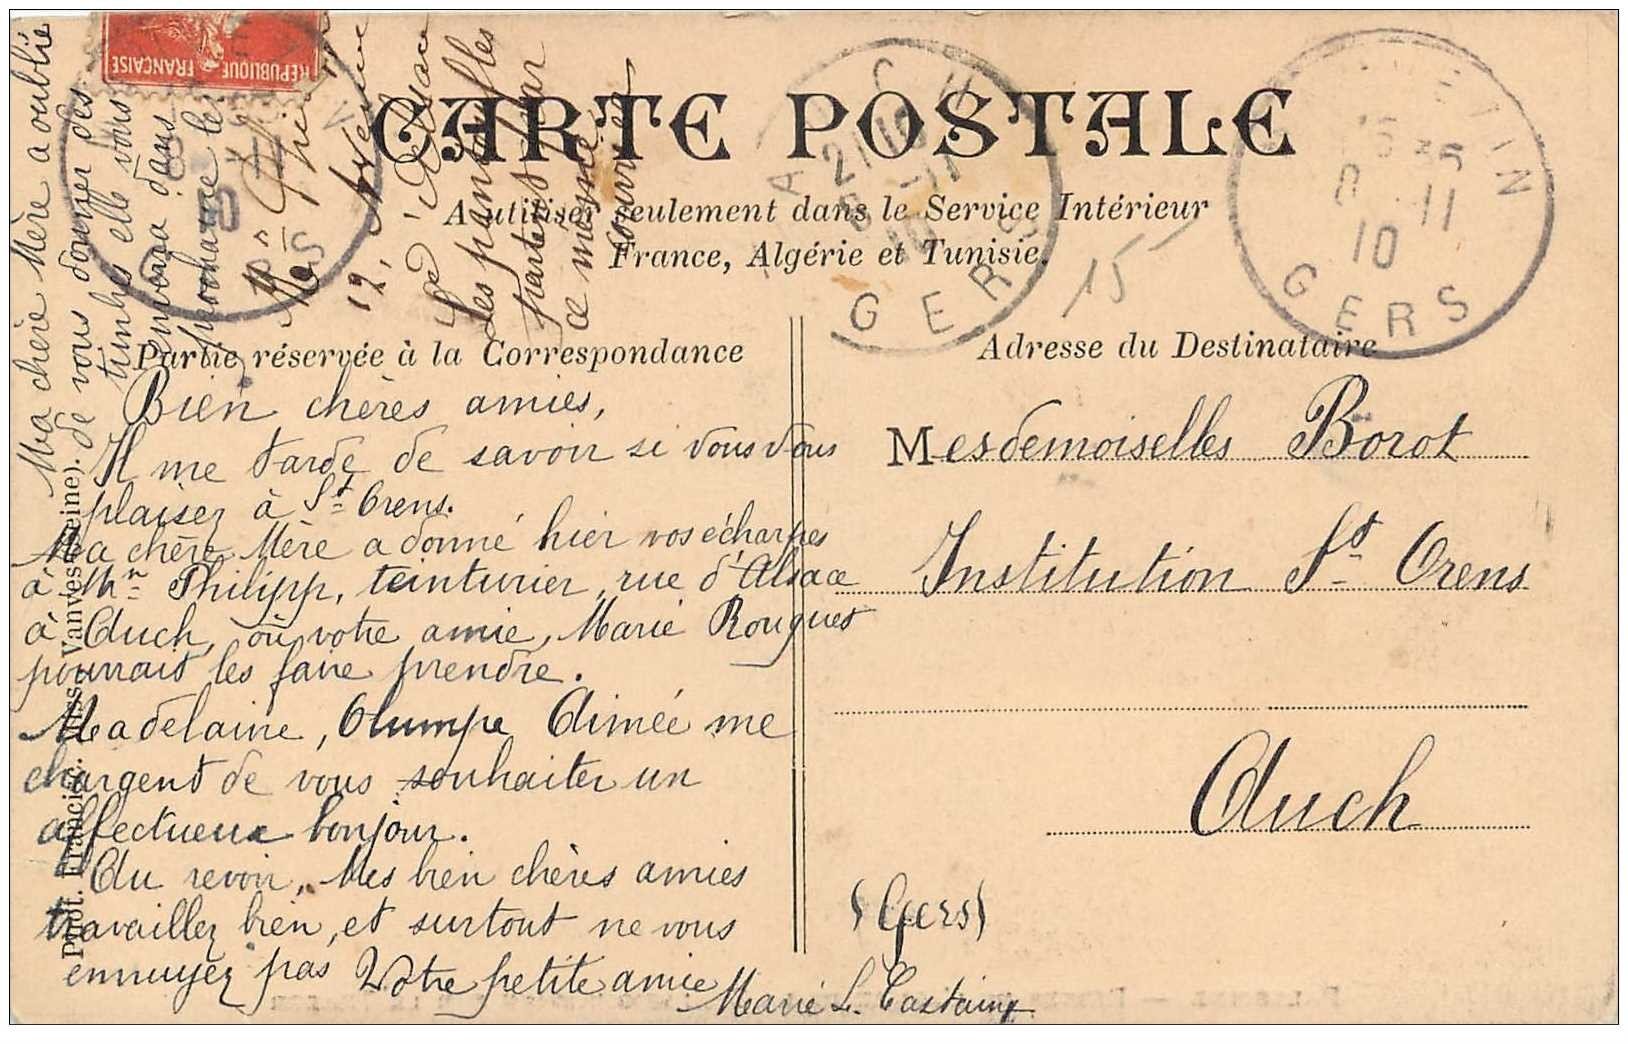 RÉPUBLIQUE FRANÇAISE
CARTE POSTALE
A utiliser seulement dans le Service Intérieur
France, Algérie et Tunisie.
15
AUCH
21 10
8 -11
10
GERS
15 35
8 -11
10
GERS
Partie réservée à la Correspondance
Adresse du Destinataire
Bien chères amies,
Il me tarde de savoir si vous vous
plaisez à St Orens.
Ma chère Mère a donné hier vos écharpes
à Mr Philipp, teinturier, rue d'Alsace
à Auch, où votre amie, Marie Rouques
pourrait les faire prendre.
Madelaine, Olumpe Aimée me
chargent de vous souhaiter un
affectueux bonjour.
Au revoir, Mes bien chères amies
travaillez bien, et surtout ne vous
ennuyez pas Votre petite amie
Marie L. Castaing
Mesdemoiselles Borot
Institution St Orens
Auch
(Gers)
Ma chère Mère a oublié
de vous donner des
timbres elle vous
enverra dans
prochaine le
12, Avenue
d'Alsace
Les pantoufles
partent par
ce même
courrier
Phot. Francisc. Miss. Vanves (Seine).